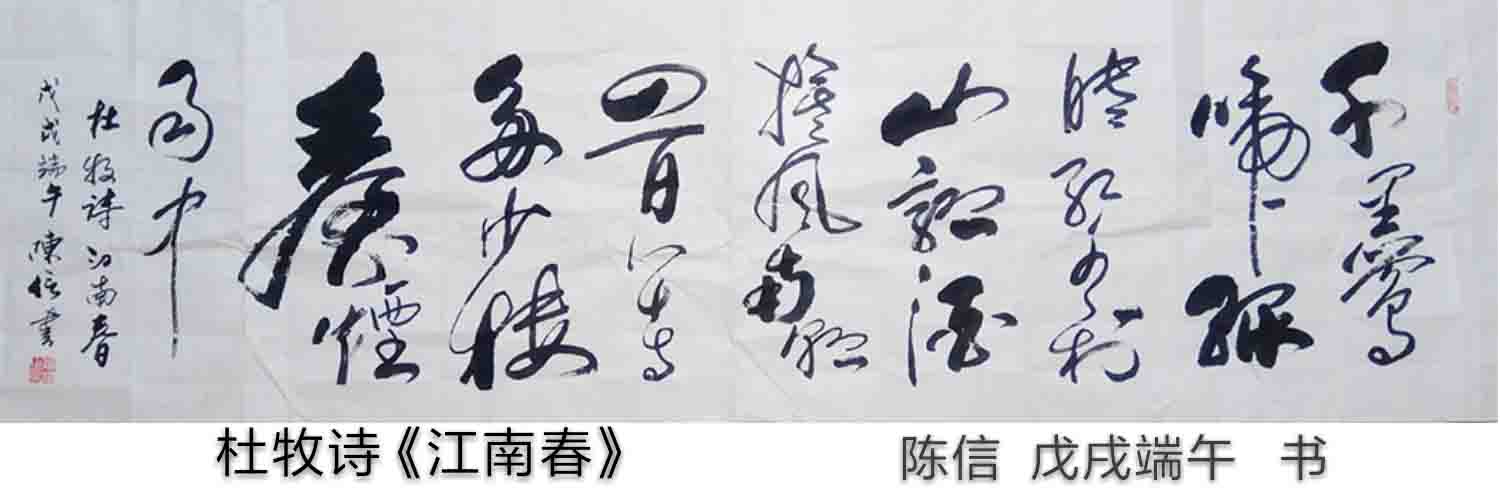 千里鶯
啼綠
映紅水村
山郭酒
旗風南朝
四百八十寺
多少樓
臺煙
雨中
杜牧詩江南春
戊戌端午陳信書
杜牧诗《江南春》
陈信 戊戌端午 书